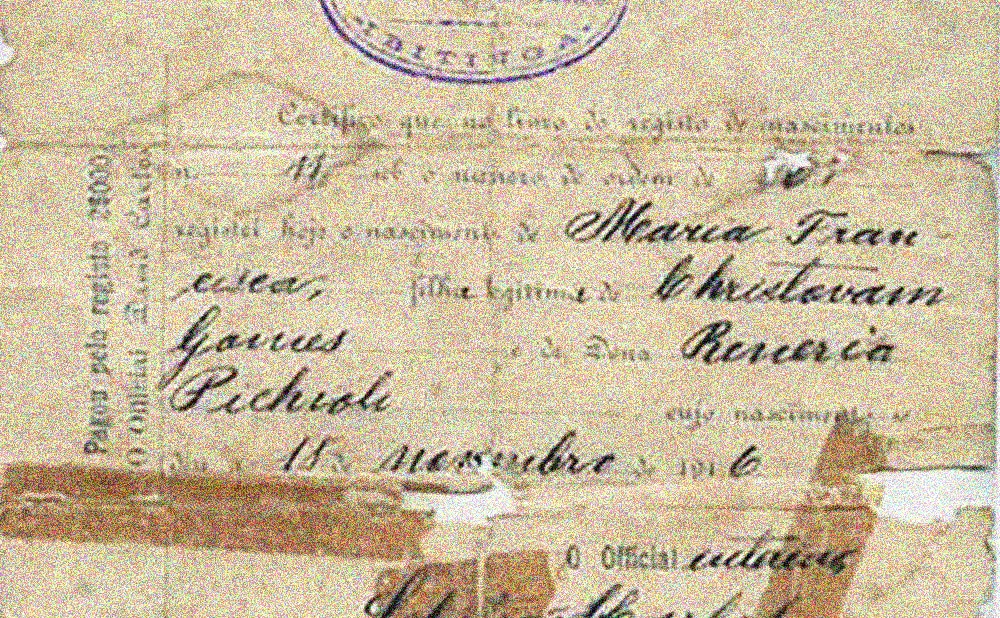 Certifico que no livro de registo de nascimentos
n. 11 sob o numero de ordem de
registei hoje o nascimento de Maria Fran
cisca, filha legitima de Christovam
Gomes e de Dona Reneria
Pichioli cujo nascimento se
deu a 18 de novembro de 1916
O Official
Pagou pela registo 2$000
O Official